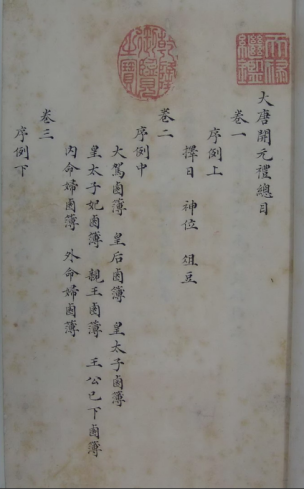 大唐開元禮總目
卷一
序例上
擇日　神位　俎豆
卷二
序例中
大駕鹵簿　皇后鹵簿　皇太子鹵簿
皇太子妃鹵簿　親王鹵簿　王公已下鹵簿
內命婦鹵簿　外命婦鹵簿
卷三
序例下
乾隆御覽之寶
天祿繼鑑